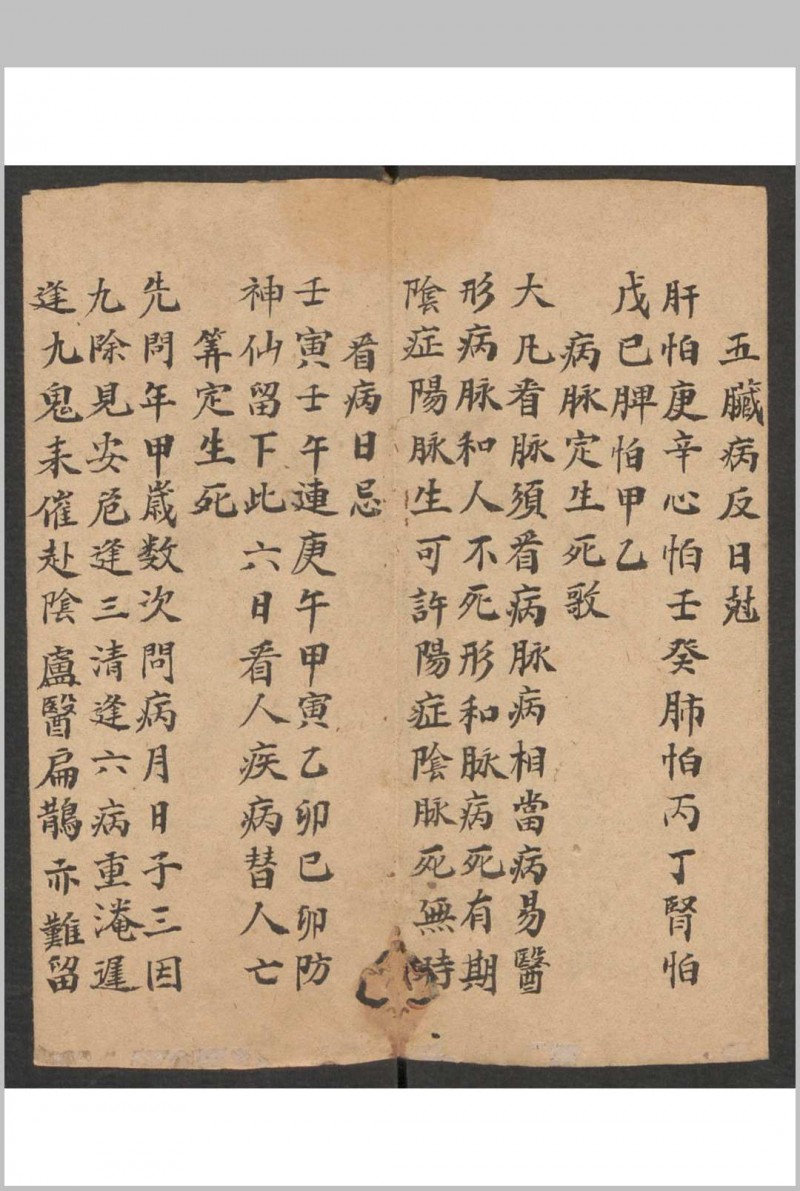 五臟病反日尅
肝怕庚辛心怕壬癸肺怕丙丁腎怕
戊巳脾怕甲乙
病脉定生死歌
大凡看脉須看病脉病相當病易醫
形病脉和人不死形和脉病死有期
陰症陽脉生可許陽症陰脉死無時
看病日忌
壬寅壬午連庚午甲寅乙卯巳卯防
神仙留下此六日看人疾病替人亡
筭定生死
先問年甲歲数次問病月日子三因
九除見安危逢三清逢六病重淹遲
逢九鬼来催赴陰盧醫扁鵲亦難留